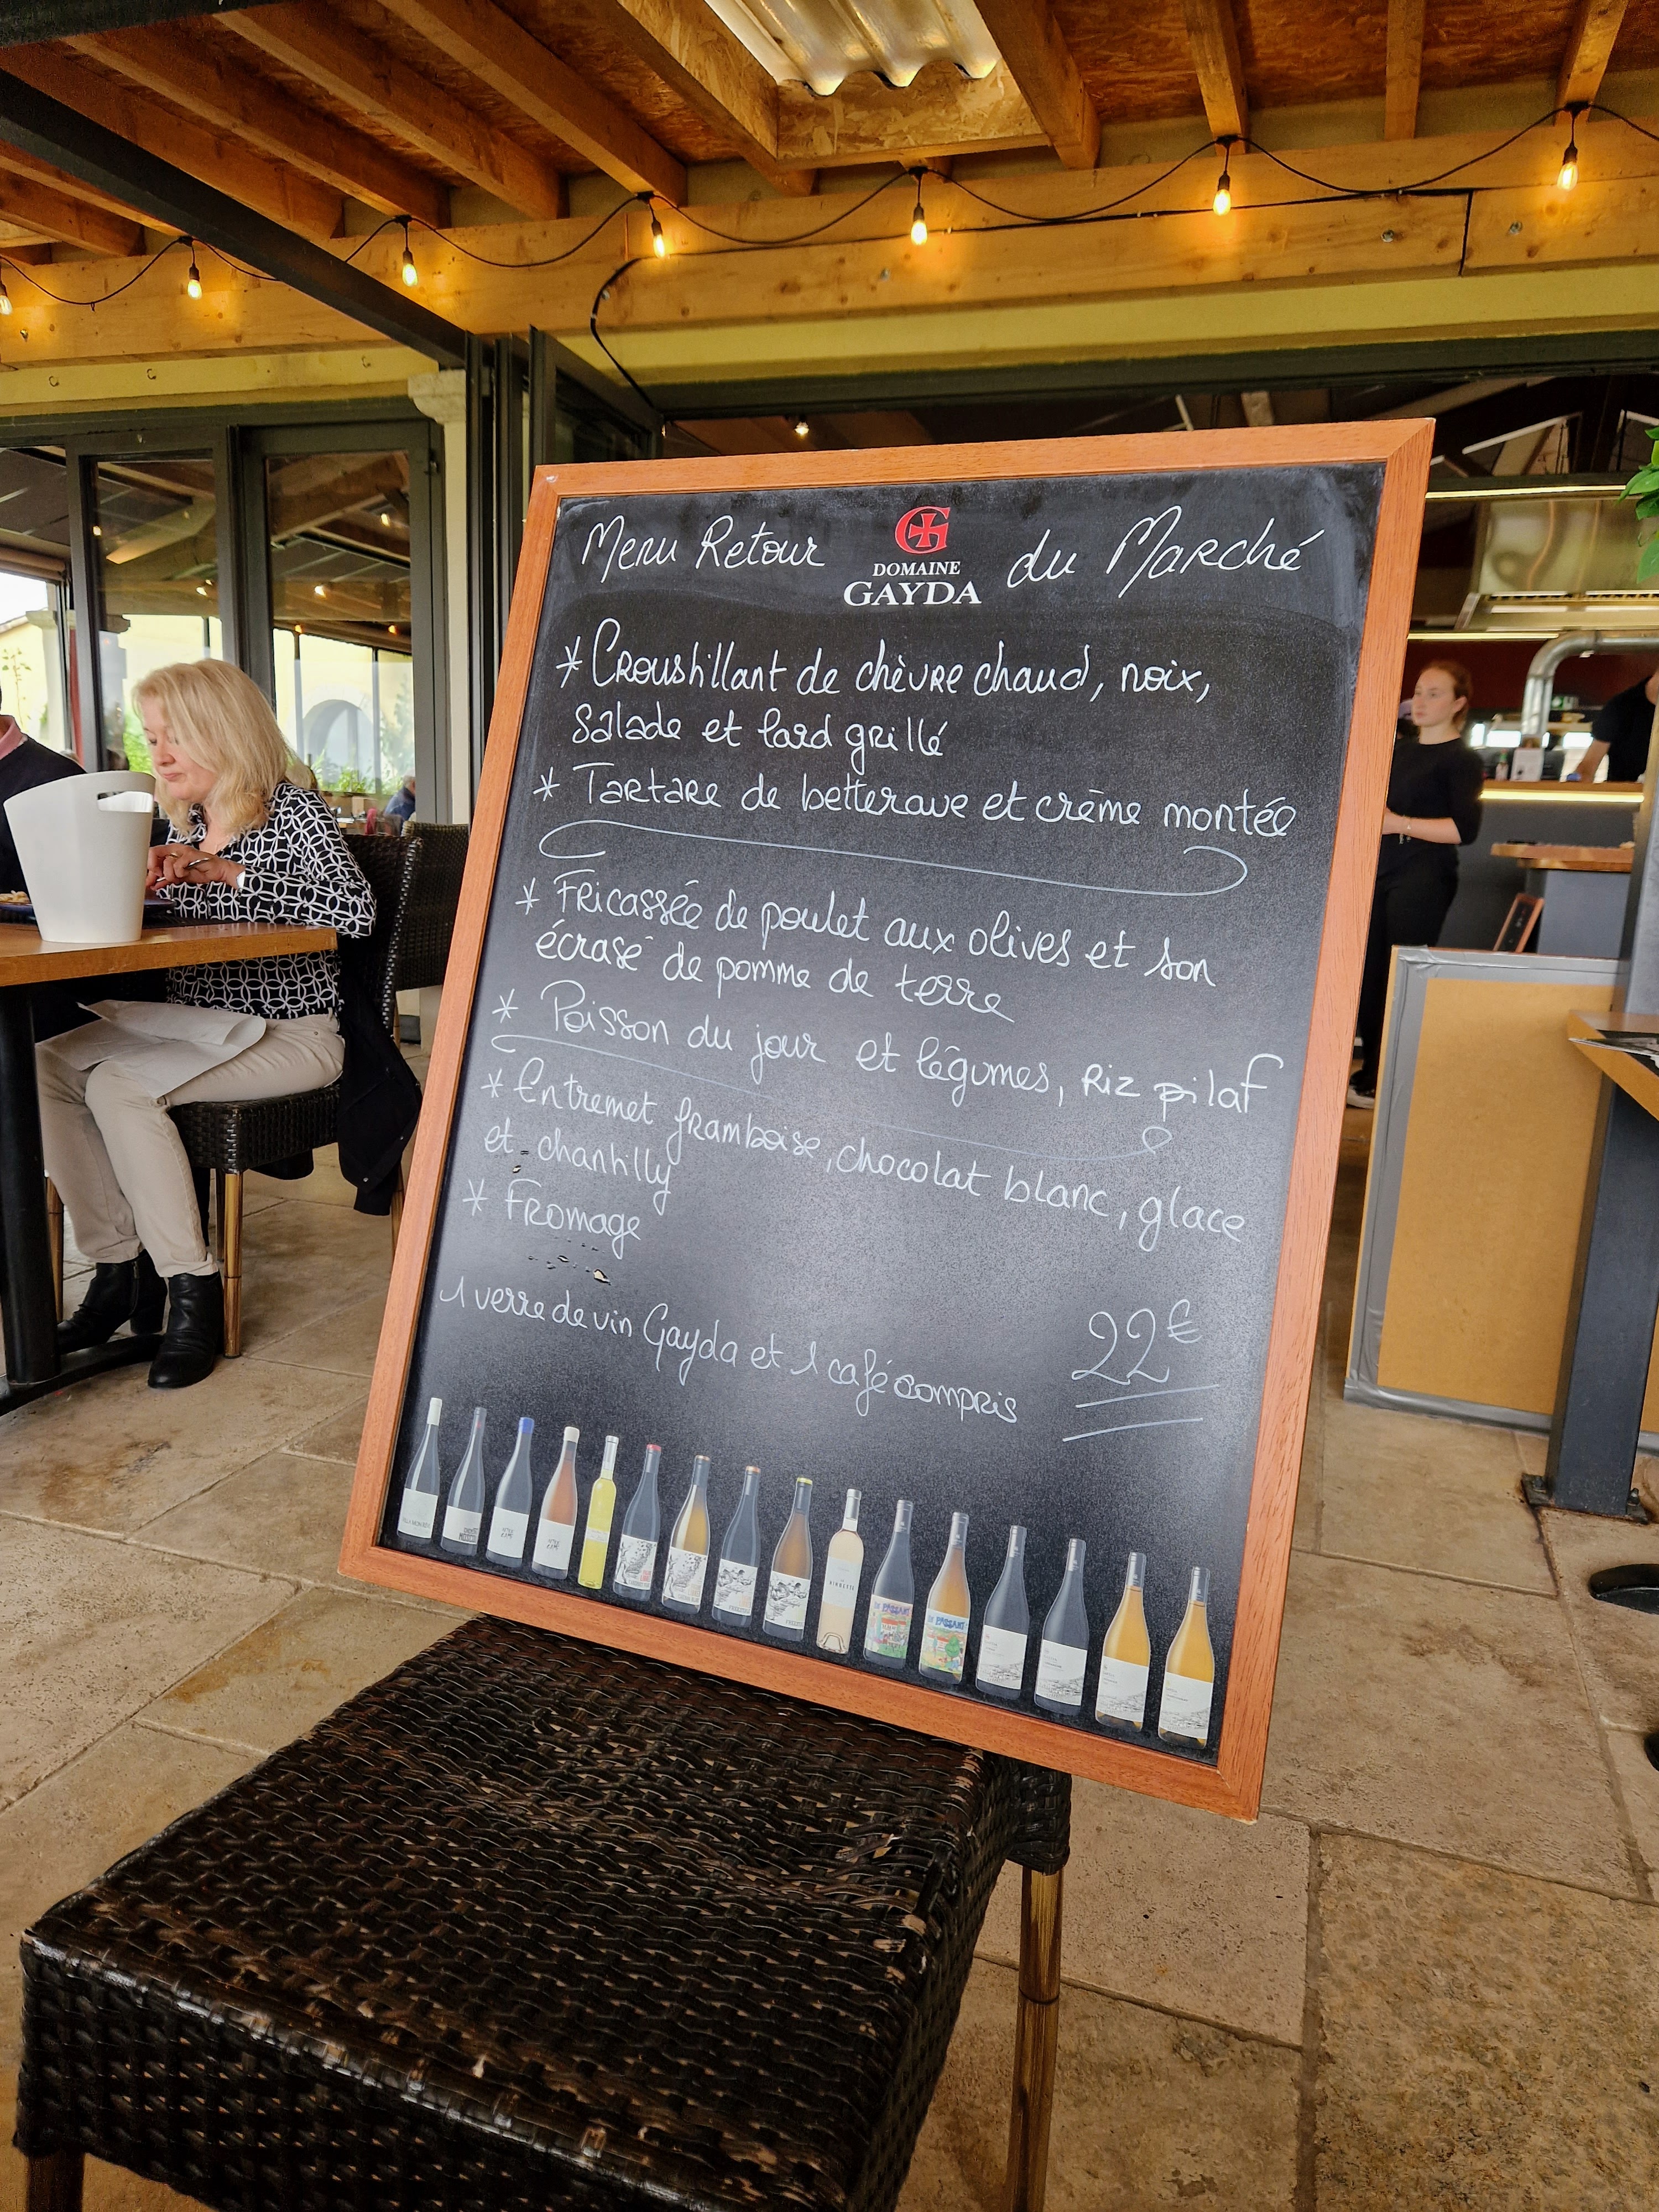 Menu Retour du Marché
DOMAINE
GAYDA
* Croustillant de chèvre chaud, noix,
salade et lard grillé
* Tartare de betterave et crème montée
* Fricassée de poulet aux olives et son
écrasé de pomme de terre
* Poisson du jour et légumes, riz pilaf
* Entremet framboise, chocolat blanc, glace
et chantilly
* Fromage
1 verre de vin Gayda et 1 café compris
22€
EN PASSANT
EN PASSANT